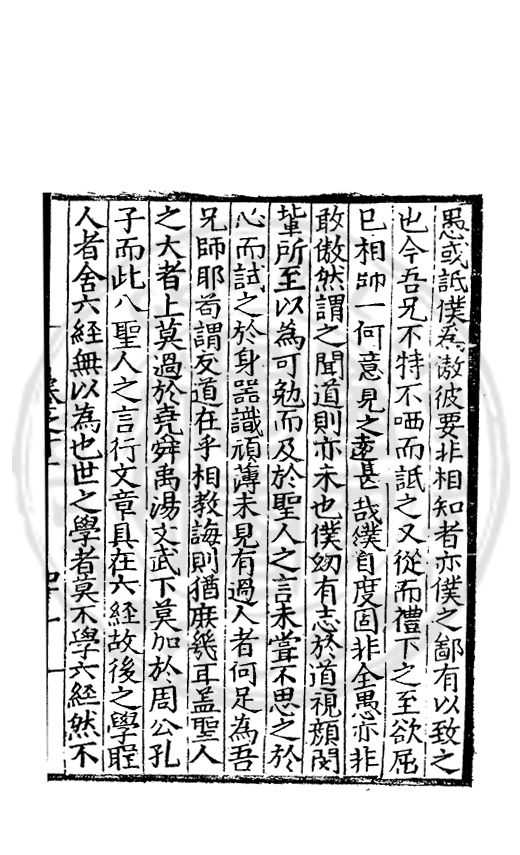 愚或詆僕為傲彼要非相知者亦僕之鄙有以致之
也今吾兄不特不哂而詆之又從而禮下之至欲屈
巳相師一何意見之遼甚哉僕自度固非全愚亦非
敢傲然謂之聞道則亦未也僕幼有志於道視顏閔
軰所至以為可勉而及於聖人之言未嘗不思之於
心而試之於身器識頑薄未見有過人者何足為吾
兄師耶苟謂友道在乎相教誨則猶庶幾耳盖聖人
之大者上莫過於堯舜禹湯文武下莫加於周公孔
子而此八聖人之言行文章具在六經故後之學聖
人者舍六經無以為也世之學者莫不學六經然不
卷之十一